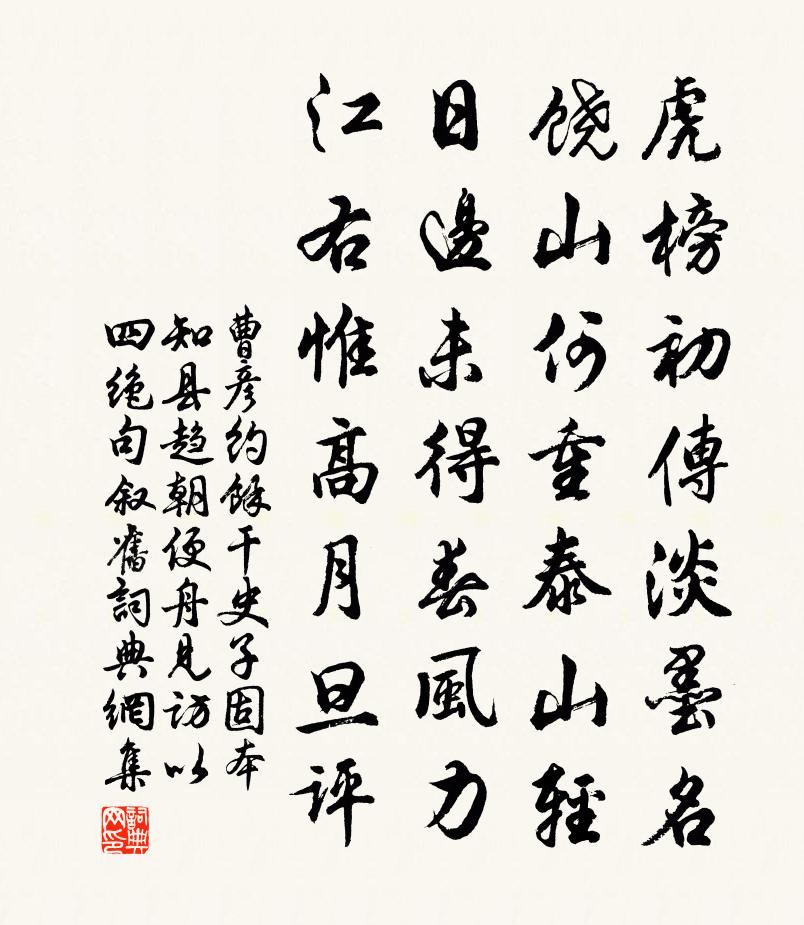 虎榜初傳淡墨名
饶山何重泰山輕
日邊未得春風力
江右惟高月旦評
曹彦約餘干史子固本
知县趋朝便舟見訪以
四絶句叙舊詞典網集
詞典
网印